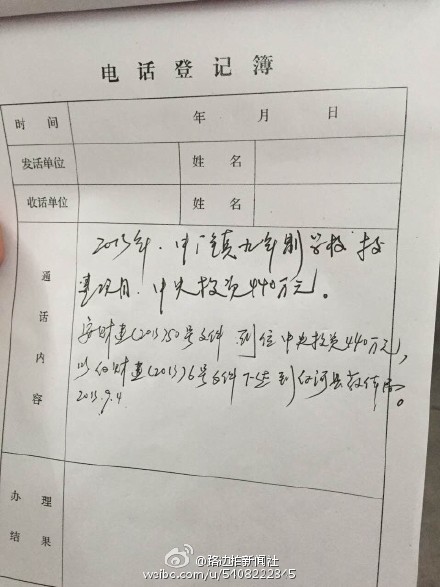 电话登记簿
时间 年 月 日
发话单位 姓名
收话单位 姓名
通话内容
2015年,中厂镇九年制学校投
建项目,中央投资440万元。
安财建(2015)50号文件 到位中央投资440万元,
以白财建(2015)36号文件下达到白河县教体局。
2015.9.4
办理结果
路边摊新闻社
weibo.com/u/5108222345